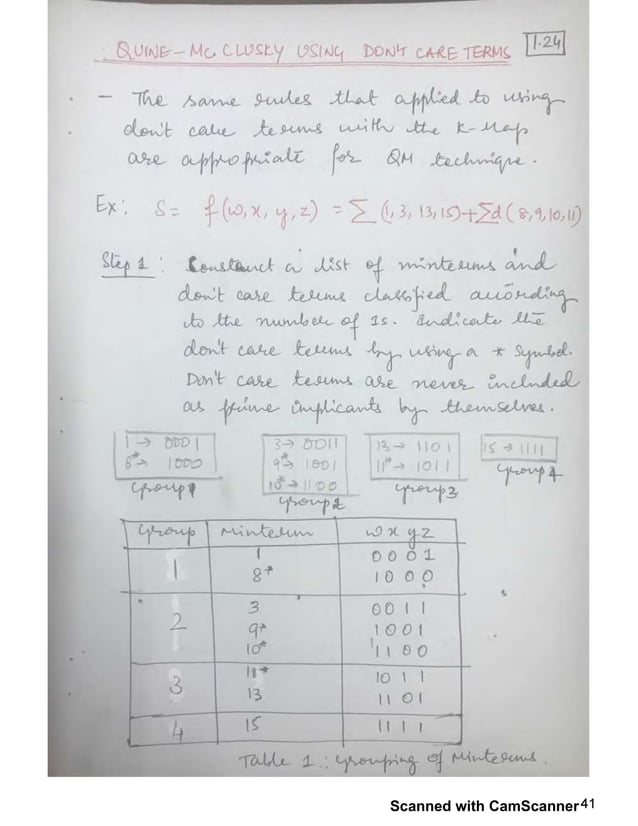 QUINE-Mc CLUSKY USING DON'T CARE TERMS 1.24
- The same rules that applied to using
don't care terms with the K-Map
are appropriate for QM technique.
Ex: S = f(w,x,y,z) = ∑(1,3,13,15)+∑d(8,9,10,11)
Step 1: Construct a list of minterms and
don't care terms classified according
to the number of 1s. Indicate the
don't care terms by using a * symbol.
Don't care terms are never included
as prime implicants by themselves.
1 → 0001
8* → 1000
Group 1
3 → 0011
9* → 1001
10* → 1100
Group 2
13 → 1101
11* → 1011
Group 3
15 → 1111
Group 4
Group Minterm w x y z
1 1 0 0 0 1
8* 1 0 0 0
2 3 0 0 1 1
9* 1 0 0 1
10* 1 1 0 0
3 11* 1 0 1 1
13 1 1 0 1
4 15 1 1 1 1
Table 1: Grouping of Minterms.
Scanned with CamScanner 41